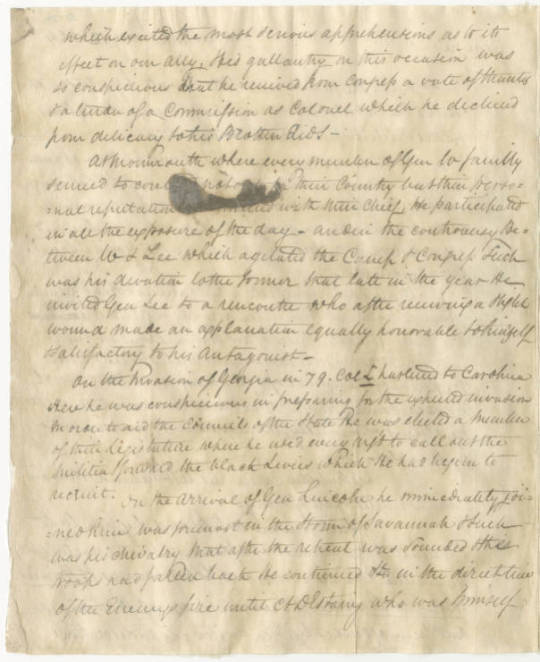 which excited the most serious apprehensions as to its
effect on our ally. His gallantry on this occasion was
so conspicuous that he received from Congress a vote of thanks
& a tender of a Commission as Colonel which he declined
from delicacy to his Brother Aids -
At Monmouth where every member of Gen Ws family
seemed to not only their Country but their perso-
nal reputation with their Chief, He participated
in all the exposure of the day - and in the controversy Be-
tween W & Lee which agitated the Camp & Congress Such
was his devotion to the former that late in the year He
invited Gen Lee to a rencontre who after receiving a slight
wound made an explanation equally honorable to himself
& satisfactory to his Antagonist -
On the Invasion of Georgia in 79. Col L hastened to Carolina
here he was conspicuous in preparing for the expected invasion
In order to aid the Councils of the State He was elected a Member
of their Legislature where he used every effort to call out the
Militia forward the black Levies which He had begun to
recruit. On the arrival of Gen Lincoln he immediately joi-
ned him was foremost in the Storm of Savannah & such
was his chivalry that after the retreat was sounded & his
troops had fallen back He continued in the direction
of the Enemys fire until Ct DEstaing who was himself